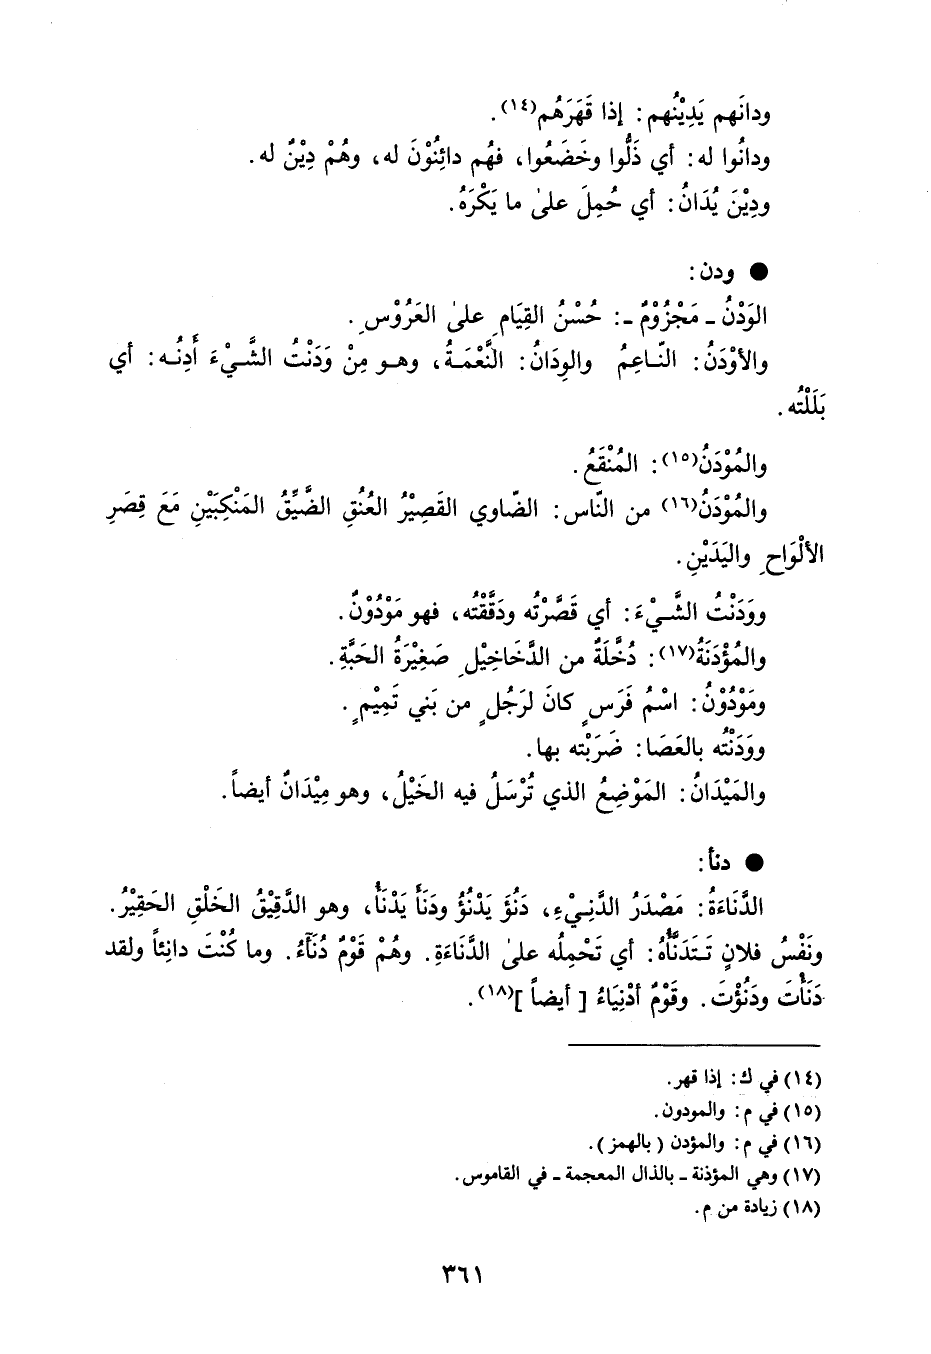 ودانَهم يَدِيْنُهم: إذا قَهَرَهُم(١٤).
ودانُوا له: أي ذَلُّوا وخَضَعُوا، فهُم دائِنُوْنَ له، وهُمْ دِيْنٌ له.
ودِيْنَ يُدَانُ: أي حُمِلَ علىٰ ما يَكْرَهُ.
● ودن:
الوَدْنُ ـ مَجْزُوْمٌ ـ: حُسْنُ القِيَامِ علىٰ العَرُوْسِ.
والأوْدَنُ: النّاعِمُ والوِدَانُ: النَّعْمَةُ، وهو مِنْ وَدَنْتُ الشَّيْءَ أَدِنُه: أي
بَلَلْتُه.
والمُوْدَنُ(١٥): المُنْقَعُ.
والمُوْدَنُ(١٦) من النّاس: الضّاوي القَصِيْرُ العُنُقِ الضَّيِّقُ المَنْكِبَيْنِ مَعَ قِصَرِ
الألْوَاحِ واليَدَيْنِ.
ووَدَنْتُ الشَّيْءَ: أي قَصَّرْتُه ودَقَّقْتُه، فهو مَوْدُوْنٌ.
والمُؤْدَنَةُ(١٧): دُخَّلَةٌ من الدَّخَاخِيْلِ صَغِيْرَةُ الحَبَّةِ.
ومَوْدُوْنٌ: اسْمُ فَرَسٍ كانَ لرَجُلٍ من بَني تَمِيْمٍ.
ووَدَنْتُه بالعَصَا: ضَرَبْته بها.
والمَيْدَانُ: المَوْضِعُ الذي تُرْسَلُ فيه الخَيْلُ، وهو مِيْدَانٌ أيضاً.
● دنأ:
الدَّنَاءَةُ: مَصْدَرُ الدَّنِيْءِ، دَنُؤَ يَدْنُؤُ ودَنَأَ يَدْنَأُ، وهو الدَّقِيْقُ الخَلْقِ الحَقِيْرُ.
ونَفْسُ فلانٍ تَتَدَنَّأُه: أي تَحْمِلُه علىٰ الدَّنَاءَةِ. وهُمْ قَوْمٌ دُنَآءُ. وما كُنْتَ دانِئاً ولقد
دَنَأْتَ ودَنُؤْتَ. وقَوْمٌ أدْنِيَاءُ [ أيضاً ](١٨).
(١٤) في ك: إذا قهر.
(١٥) في م: والمودون.
(١٦) في م: والمؤدن (بالهمز).
(١٧) وهي المؤذنة ـ بالذال المعجمة ـ في القاموس.
(١٨) زيادة من م.
٣٦١